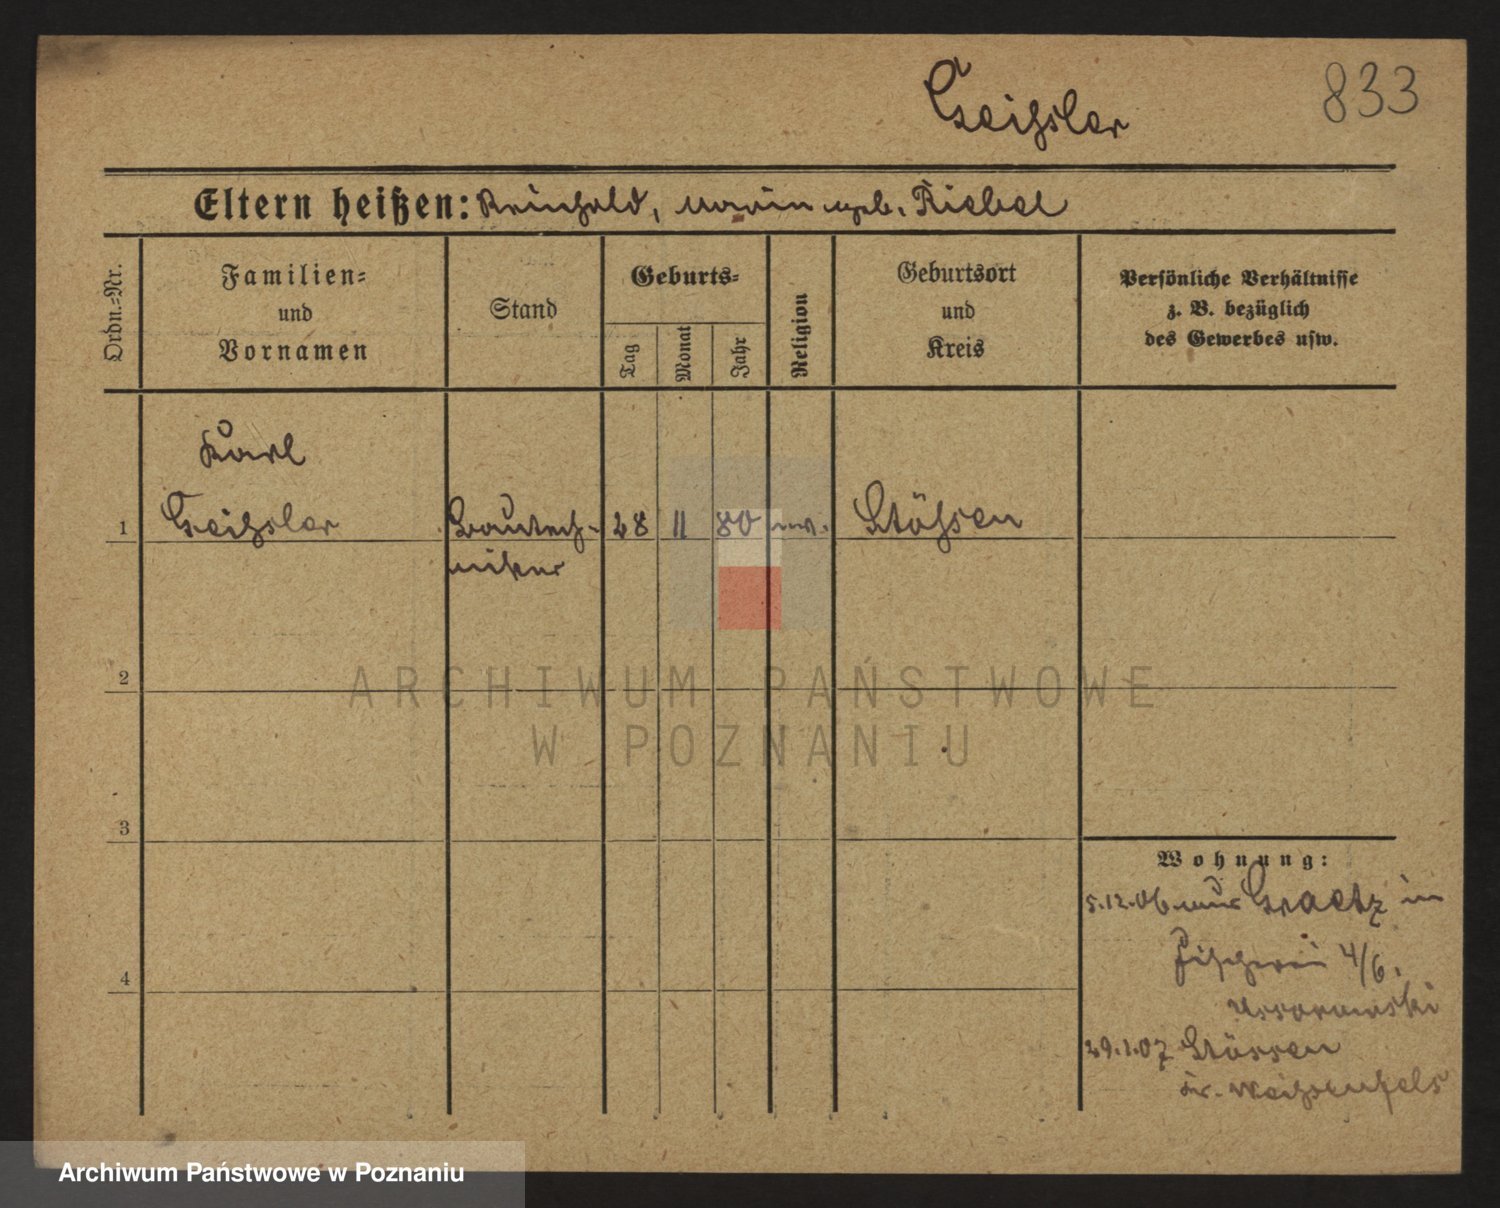 Geißler
833
Eltern heißen: Reinhold, Marie geb. Riebel
Ordn.=Nr.
Familien=
und
Vornamen
Stand
Geburts=
Tag
Monat
Jahr
Religion
Geburtsort
und
Kreis
Persönliche Verhältnisse
z. B. bezüglich
des Gewerbes usw.
Karl
1 Geißler Bautech- 28 11 80 ev. Stößen
niker
2
ARCHIWUM PAŃSTWOWE
W POZNANIU
3
Wohnung:
5.12.06 aus Graetz in
Fischerei 4/6.
4
29.1.07 Stössen
Kr. Weißenfels
Archiwum Państwowe w Poznaniu